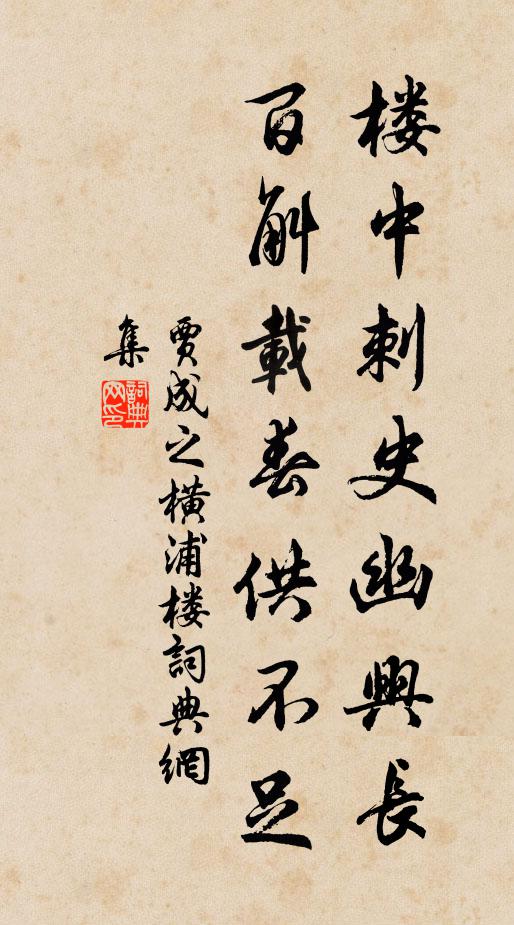 楼中刺史幽興長
百斛載春供不足
賈成之橫浦楼詞典網
集
詞典網印